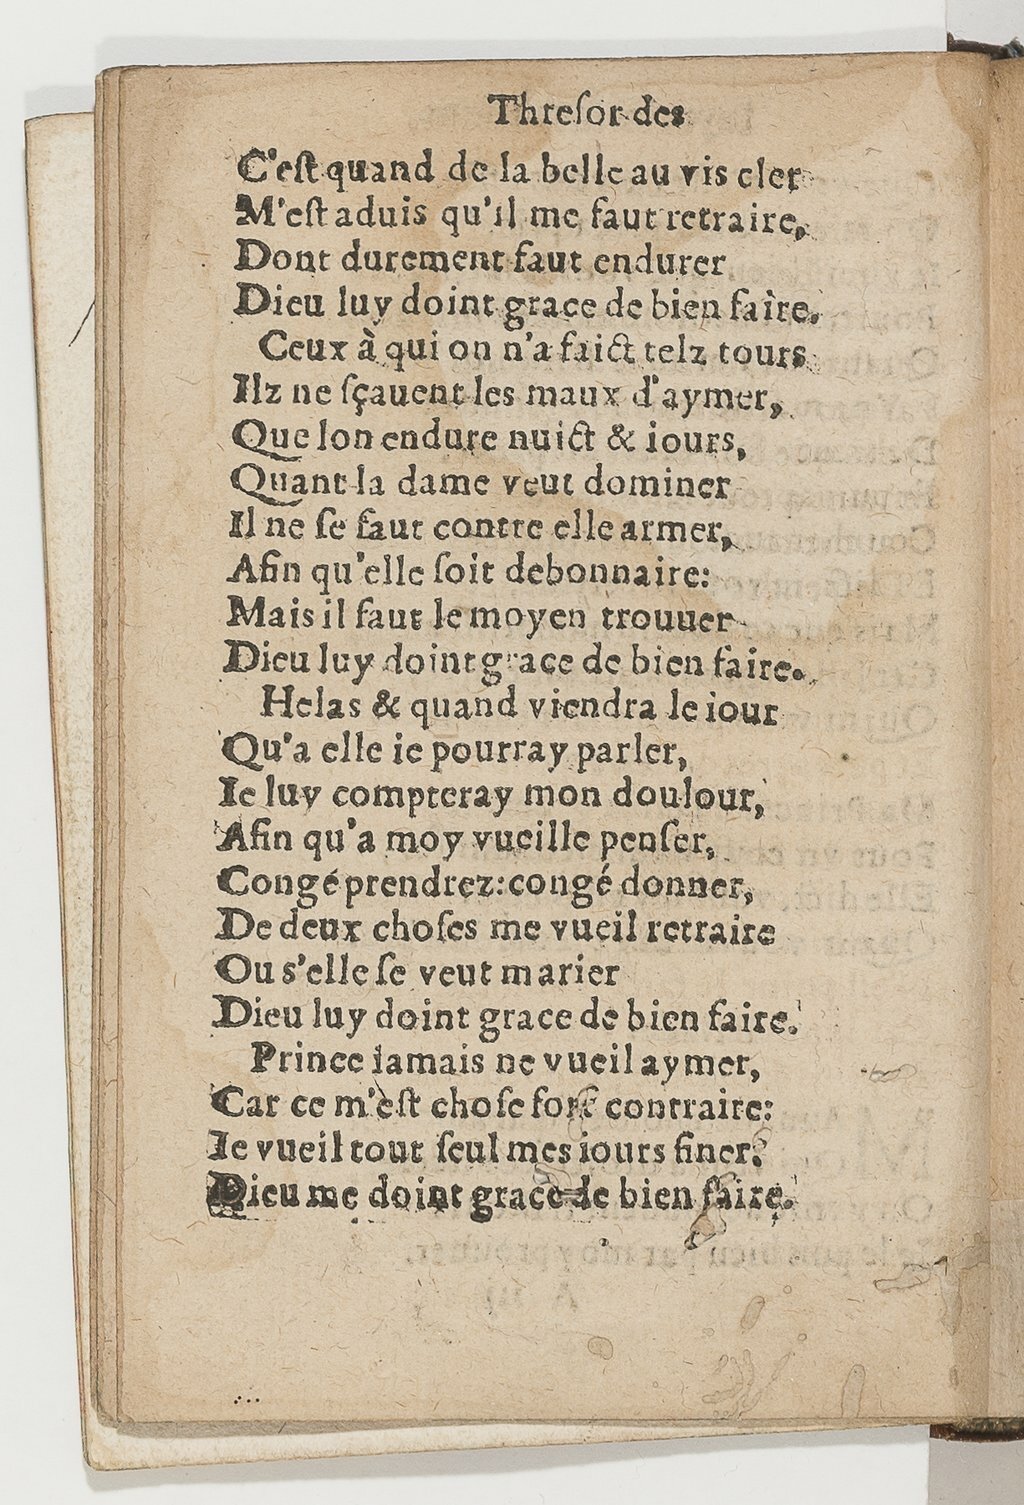 Thresor des
C'eſt quand de la belle au vis cler
M'eſt aduis qu'il me faut retraire,
Dont durement faut endurer
Dieu luy doint grace de bien faire.
Ceux à qui on n'a faict telz tours
Ilz ne ſçauent les maux d'aymer,
Que lon endure nuict & iours,
Quant la dame veut dominer
Il ne ſe faut contre elle armer,
Afin qu'elle ſoit debonnaire:
Mais il faut le moyen trouuer
Dieu luy doint grace de bien faire.
Helas & quand viendra le iour
Qu'a elle ie pourray parler,
Ie luy compteray mon doulour,
Afin qu'a moy vueille penſer,
Congé prendrez: congé donner,
De deux choſes me vueil retraire
Ou s'elle ſe veut marier
Dieu luy doint grace de bien faire.
Prince iamais ne vueil aymer,
Car ce m'eſt choſe fort contraire:
Ie vueil tout ſeul mes iours finer.
Dieu me doint grace de bien faire.